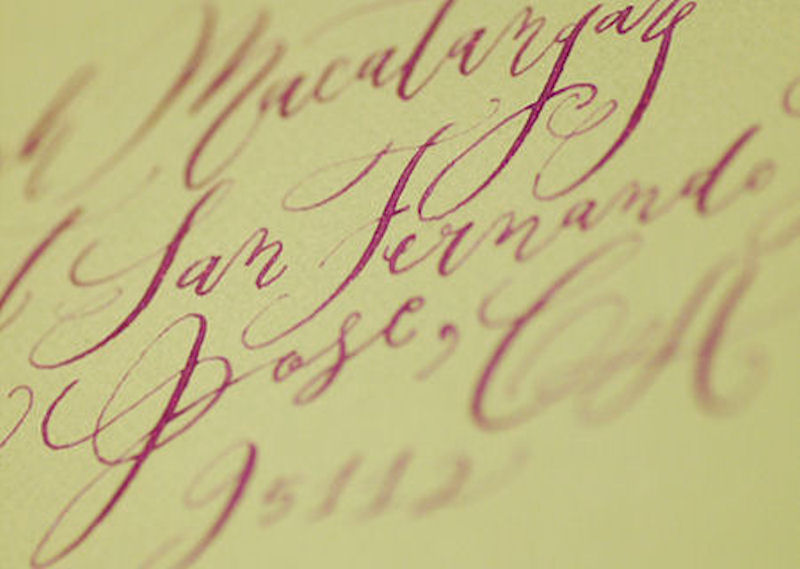 Macalangay
San Fernando
Jose, CA
95112